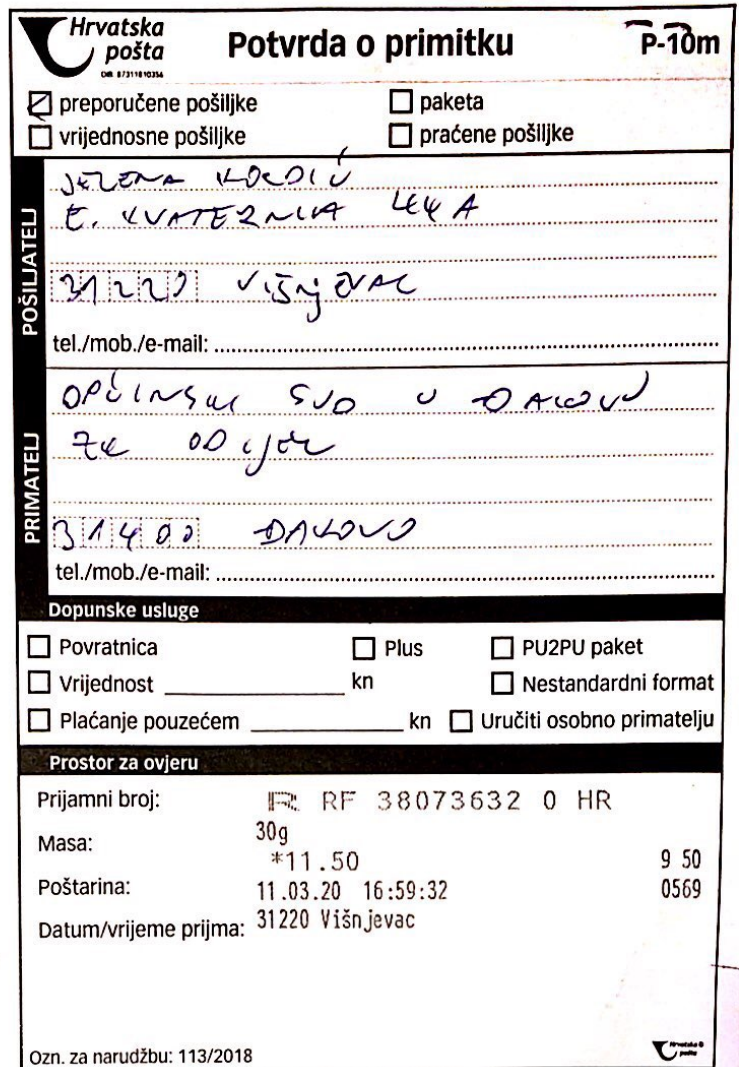 Hrvatska pošta
Potvrda o primitku
P-10m
OIB: 87311810356
preporučene pošiljke
paketa
vrijednosne pošiljke
praćene pošiljke
POŠILJATELJ
JELENA
E. KVATERNIKA 44 A
31220 VIŠNJEVAC
tel./mob./e-mail:
PRIMATELJ
OPĆINSKI SUD U ĐAKOVU
ZK ODJEL
31400 ĐAKOVO
tel./mob./e-mail:
Dopunske usluge
Povratnica
Plus
PU2PU paket
Vrijednost kn
Nestandardni format
Plaćanje pouzećem kn
Uručiti osobno primatelju
Prostor za ovjeru
Prijamni broj: R RF 38073632 0 HR
Masa: 30g
*11.50 9 50
Poštarina: 11.03.20 16:59:32 0569
Datum/vrijeme prijma: 31220 Višnjevac
Ozn. za narudžbu: 113/2018
Hrvatska pošta